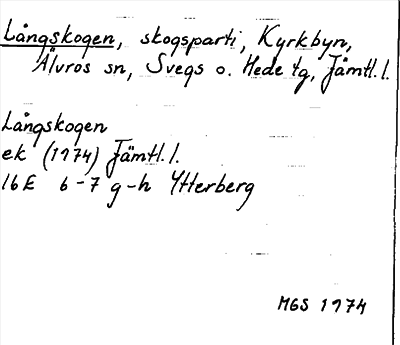 Långskogen, skogsparti, Kyrkbyn,
Älvros sn, Svegs o. Hede tg, Jämtl. l.
Långskogen
ek (1974) Jämtl. l.
16E 6-7 g-h Ytterberg
MGS 1974